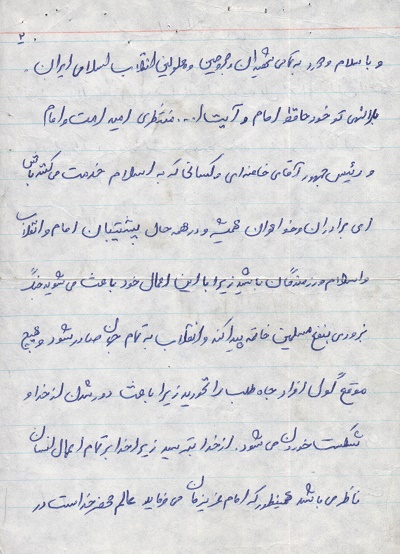 ۲
و با سلام و درود به تمامی شهیدان و مجروحین و معلولین انقلاب اسلامی ایران.
بارالهی تو خود حافظ امام و آیت ا... منتظری امید امت و امام
و رئیس جمهور آقای خامنه‌ای و کسانی که به اسلام خدمت می‌کنند باش
ای برادران و خواهران همیشه و در همه حال پشتیبان امام و انقلاب
و اسلام و رزمندگان باشید زیرا با این اعمال خود باعث می‌شوید جنگ
بزودی بنفع مسلمین خاتمه پیدا کند و انقلاب به تمام جهان صادر شود و هیچ
موقع گول افراد جاه طلب را نخورید زیرا باعث دور شدن از خدا و
شکست خوردن می‌شود. از خدا بترسید زیرا خدا بر تمام اعمال انسان
ناظر می باشد همینطور که امام عزیزمان می فرماید عالم محضر خداست در